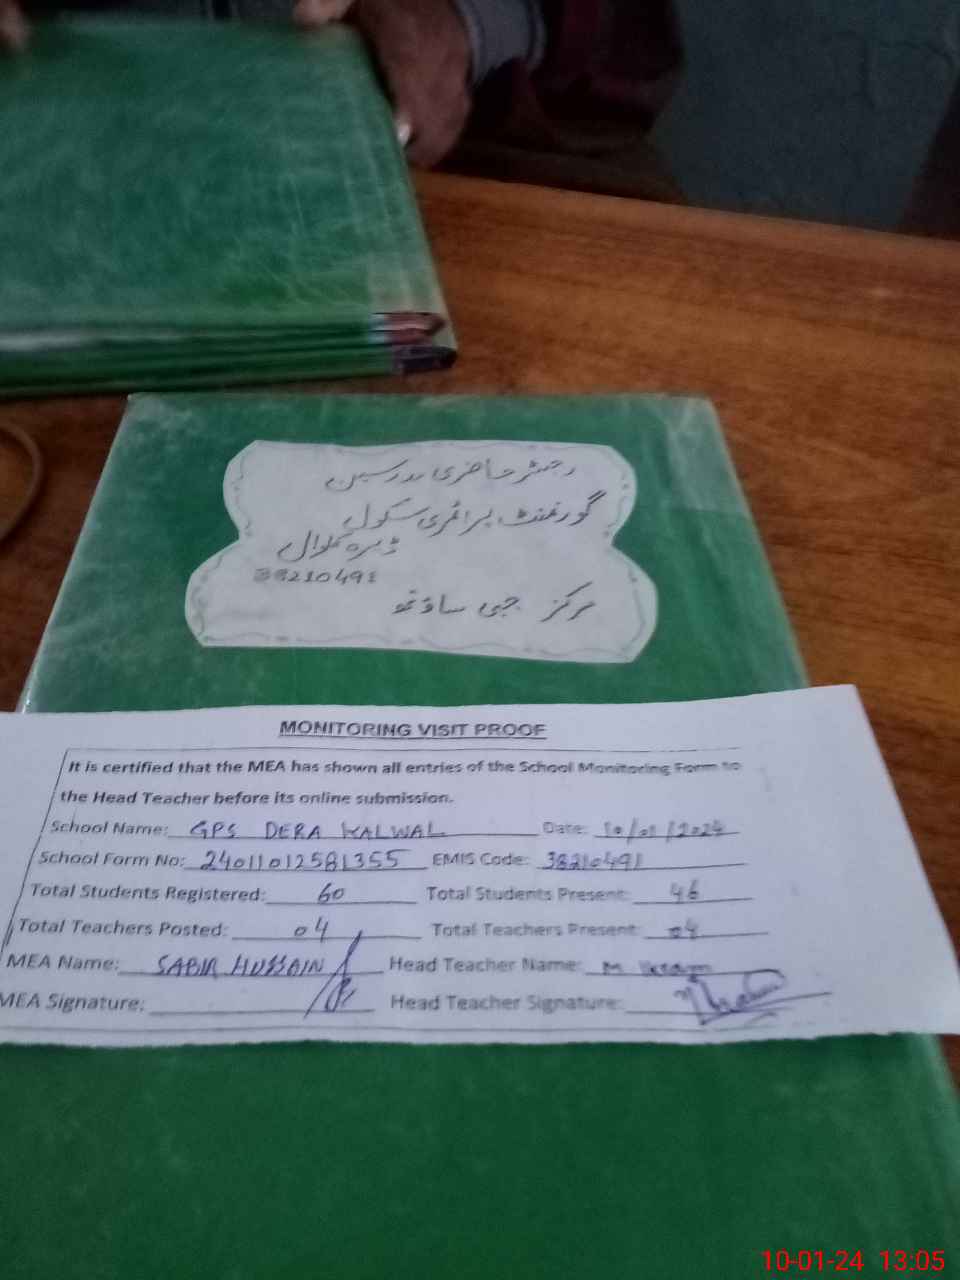 رجسٹر حاضری مدرسین
گورنمنٹ پرائمری سکول
ڈیرہ کلوال
38210491
مرکز جبی ساؤتھ
MONITORING VISIT PROOF
It is certified that the MEA has shown all entries of the School Monitoring Form to
the Head Teacher before its online submission.
School Name: GPS DERA KALWAL Date: 10/01/2024
School Form No: 24011012581355 EMIS Code: 38210491
Total Students Registered: 60 Total Students Present: 46
Total Teachers Posted: 04 Total Teachers Present: 04
MEA Name: SABIR HUSSAIN Head Teacher Name: M Ikram
MEA Signature: Head Teacher Signature:
10-01-24 13:05